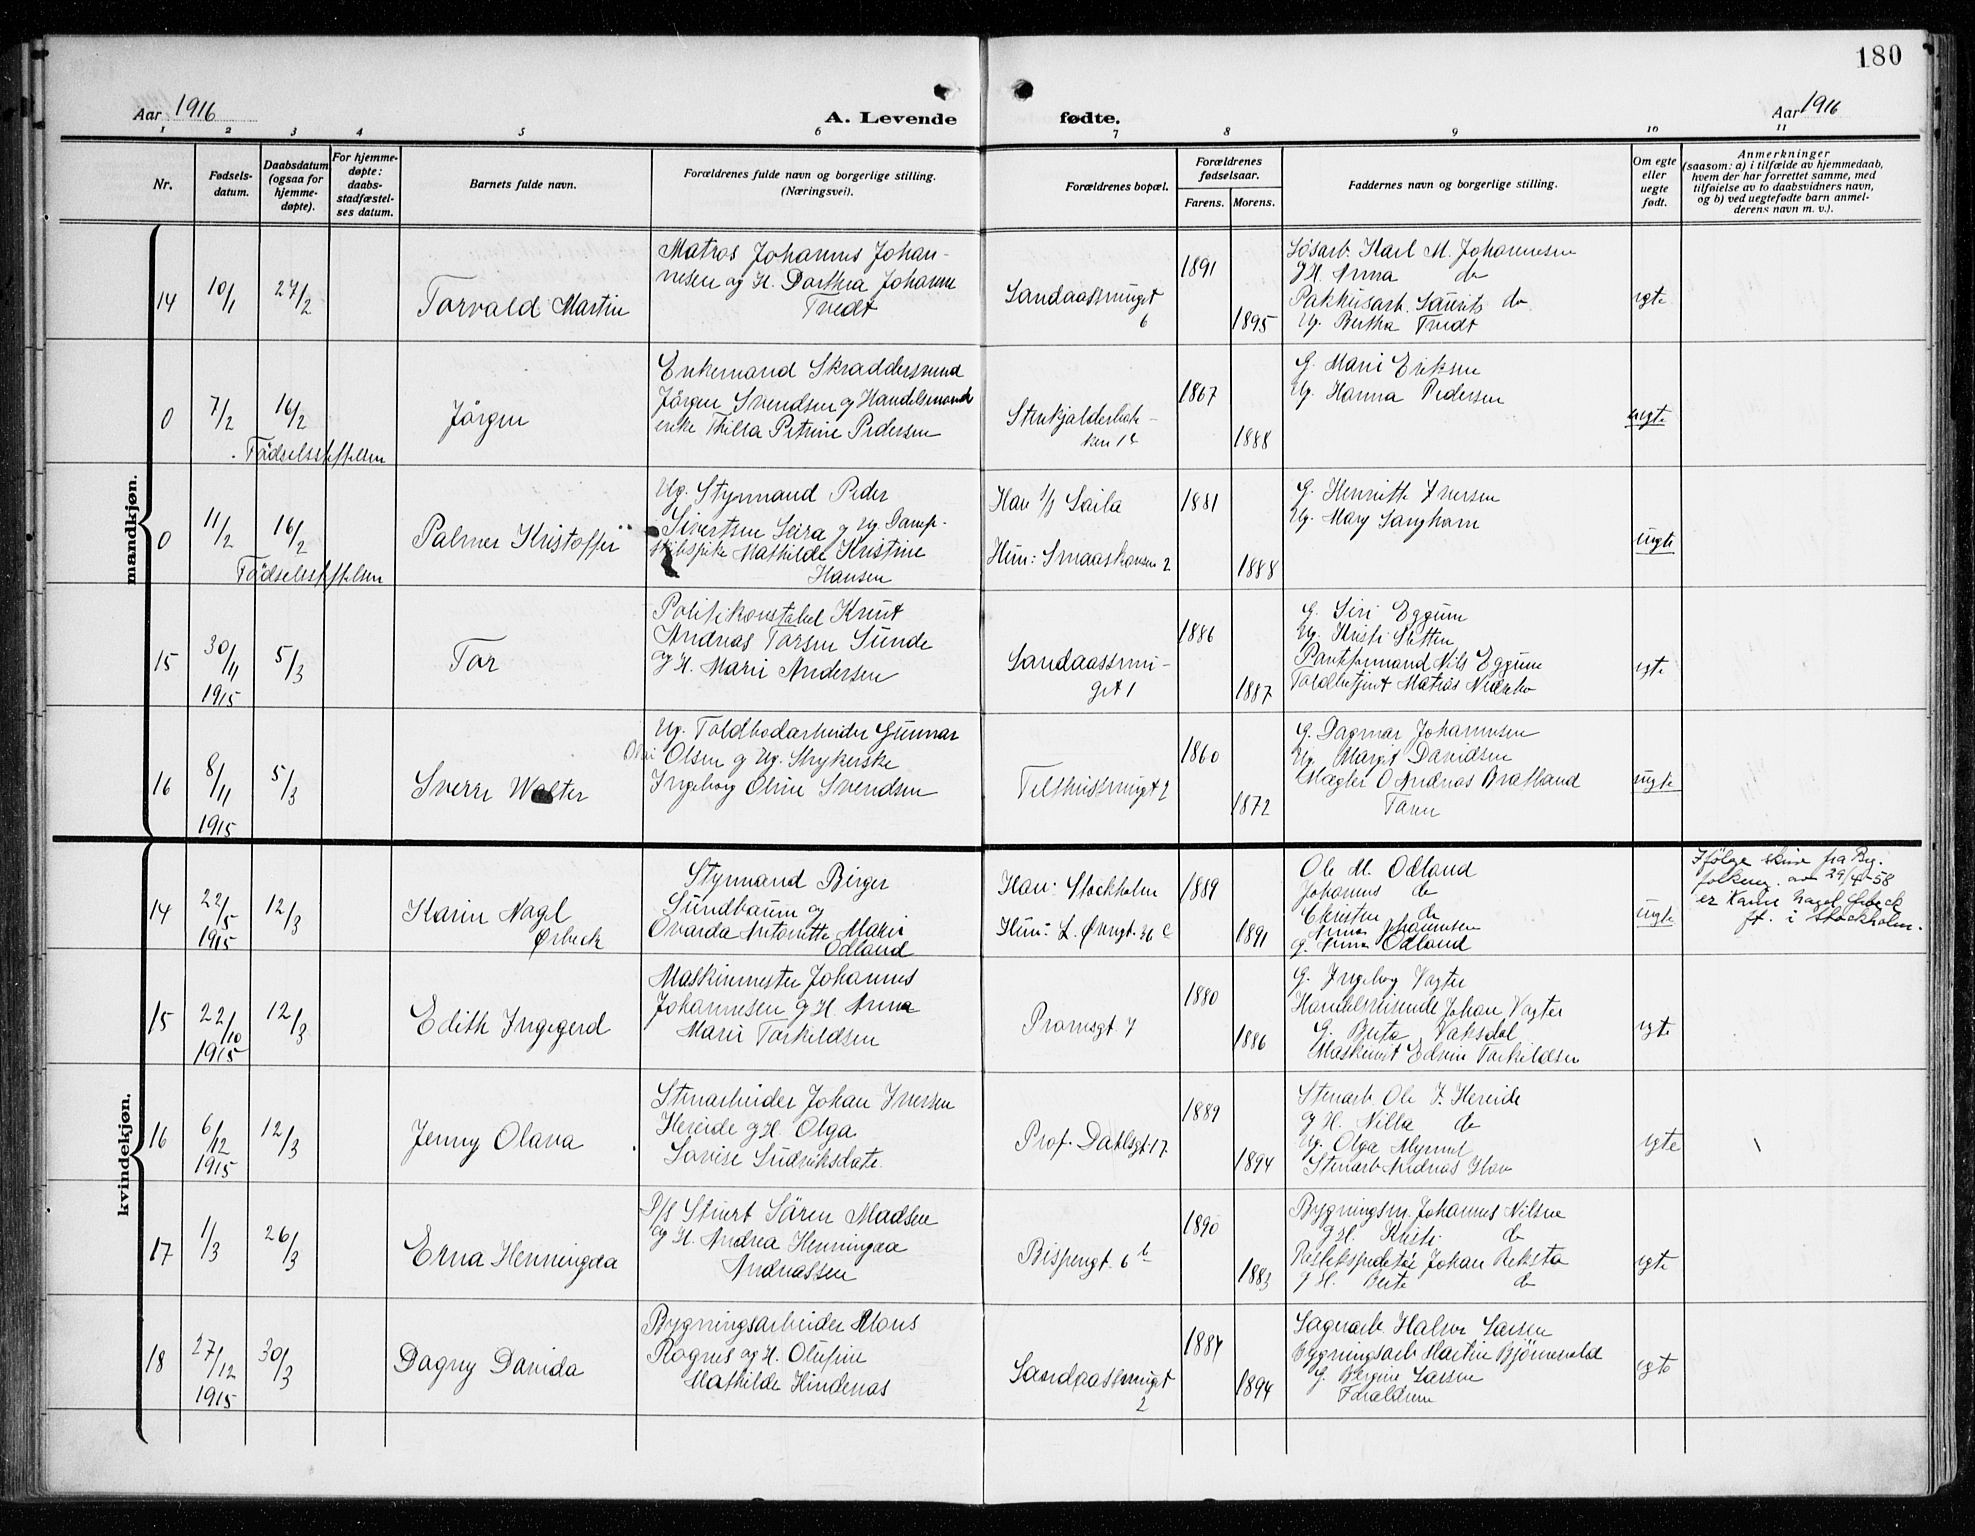 180
Aar 1916
A. Levende fødte.
Aar 1916
1 2 3 4 5 6 7 8 9 10 11
Nr.
Fødsels-
datum.
Daabsdatum
(ogsaa for
hjemme-
døpte).
For hjemme-
døpte:
daabs-
stadfæstel-
ses datum.
Barnets fulde navn.
Forældrenes fulde navn og borgerlige stilling.
(Næringsvei).
Forældrenes bopæl.
Forældrenes
fødselsaar.
Farens. Morens.
Faddernes navn og borgerlige stilling.
Om egte
eller
uegte
født.
Anmerkninger
(saasom: a) i tilfælde av hjemmedaab,
hvem der har forrettet samme, med
tilføielse av to daabsvidners navn,
og b) ved uegtefødte barn anmel-
derens navn m. v.).
mandkjøn.
14
10/1
27/2
Torvald Martin
Matros Johannes Johan-
nesen og H. Dorthea Johanne
Tvedt
Sandaassmuget
6
1891
1895
Søsarb. Karl M. Johannesen
g H Anna do
Pakhusarb. Laurits do
Ug. Bertha Tvedt
egte
0
7/2
16/2
Fødselsstiftelsen
Jörgen
Enkemand Skraddersvend
Jörgen Svendsen og Handelsmand
enke Thilla Petrine Pedersen
Stenkjælderbak-
ken 1
1867
1888
G. Marie Eriksen
Ug. Hanna Pedersen
uegte
0
11/2
16/2
Fødselsstiftelsen
Palmer Kristoffer
Ug. Styrmand Peder
Sivertsen Leira g Ug. Damp-
skibspike Mathilde Kristine
Hansen
Han S/S Laila
Hun: Smaaskansen 2
1881
1888
G. Henriette Iversen
Ug. Mary Langhorn
uegte
15
30/11
1915
5/3
Tor
Politikonstabel Knut
Andreas Torsen Sunde
og H. Marie Andersen
Sandaassmu-
get 1
1886
1887
G. Siri Eggum
Ug. Kristi Sletten
Nils Eggum
Toldbetjent Matias
egte
16
8/11
1915
5/3
Sverre Walter
Ug. Toldbodarbeider Gunnar
Olai Olsen g Ug. Strykerske
Ingeborg Oline Svendsen
Telthussmugt 2
1860
1872
G. Dagmar Johannesen
Ug Margit Davidsen
Mægler O Andreas Bratland
Faren
uegte
kvindekjøn.
14
22/5
1915
12/3
Karin Nagl
Ørbeck
Styrmand Birger
Sundbaum og
Ovarda Antonette Marie
Odland
Han: Stockholm
Hun: L. Øvregt. 36 c
1889
1891
Ole M. Odland
Johannes do
Christen do
Anna Johannesen
G. Anna Odland
uegte
Ifölge skriv fra By.
folkereg. av 29/4-58
er Karin Nagel Ørbeck
ft. i Stockholm.
15
22/10
1915
12/3
Edith Ingegerd
Maskinmester Johannes
Johannesen g H Anna
Marie Torkildsen
Pramsgt 7
1880
1886
G. Ingeborg Vagter
Handelsreisende Johan Vagter
G. Berta Vaksdal
Maskinist Edvin Torkildsen
egte
16
6/12
1915
12/3
Jenny Olava
Stenarbeider Johan Iversen
Hereide g H. Olga
Lovise Ludviksdatr.
Prof. Dahlsgt. 17
1889
1894
Stenarb. Ole I. Hereide
g H. Nilla do
Ug. Olga
Stenarb Andreas
egte
17
1/3
26/3
Erna Henningaa
P/S Stuert Sören Madsen
og H. Andrea Henningaa
Andreassen
Bispengt. 6 b
1890
1883
Bygningsm. Johannes Nilsen
g H. Kristi do
Johan Reksta
g H. Berte do
egte
18
27/12
1915
30/3
Dagny Davida
Bygningsarbeider Mons
Rognes og H. Olufine
Mathilde Hindenas
Sandaassmuget
2
1884
1894
Lagerarb Halvor Larsen
Bygningsarb Martin Bjørnevold
G. Bergine Larsen
Forældrene
egte